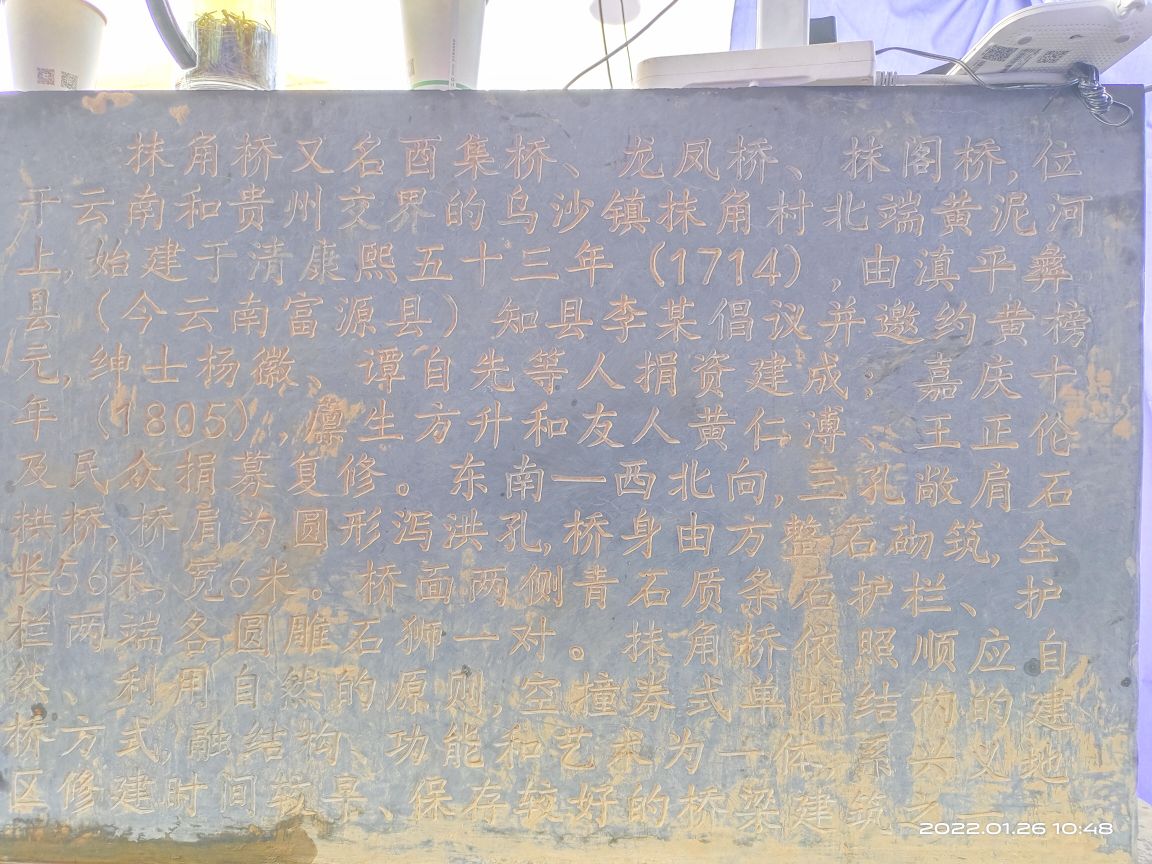 抹角桥又名酉集桥、龙凤桥、抹阁桥,位
于云南和贵州交界的乌沙镇抹角村北端黄泥河
上,始建于清康熙五十三年(1714),由滇平彝
县(今云南富源县)知县李某倡议并邀约黄榜
元,绅士杨徽、谭自先等人捐资建成;嘉庆十
年(1805),廪生方升和友人黄仁溥、王正伦
及民众捐募复修。东南—西北向,三孔敞肩石
拱桥,桥肩为圆形泻洪孔,桥身由方整石砌筑,全
长56米,宽6米。桥面两侧青石质条石护栏、护
栏两端各圆雕石狮一对。抹角桥依照顺应自
然、利用自然的原则,空撞券式单拱结构的建
桥方式,融结构、功能和艺术为一体,系兴义地
区修建时间较早、保存较好的桥梁建筑之一
2022.01.26 10:48